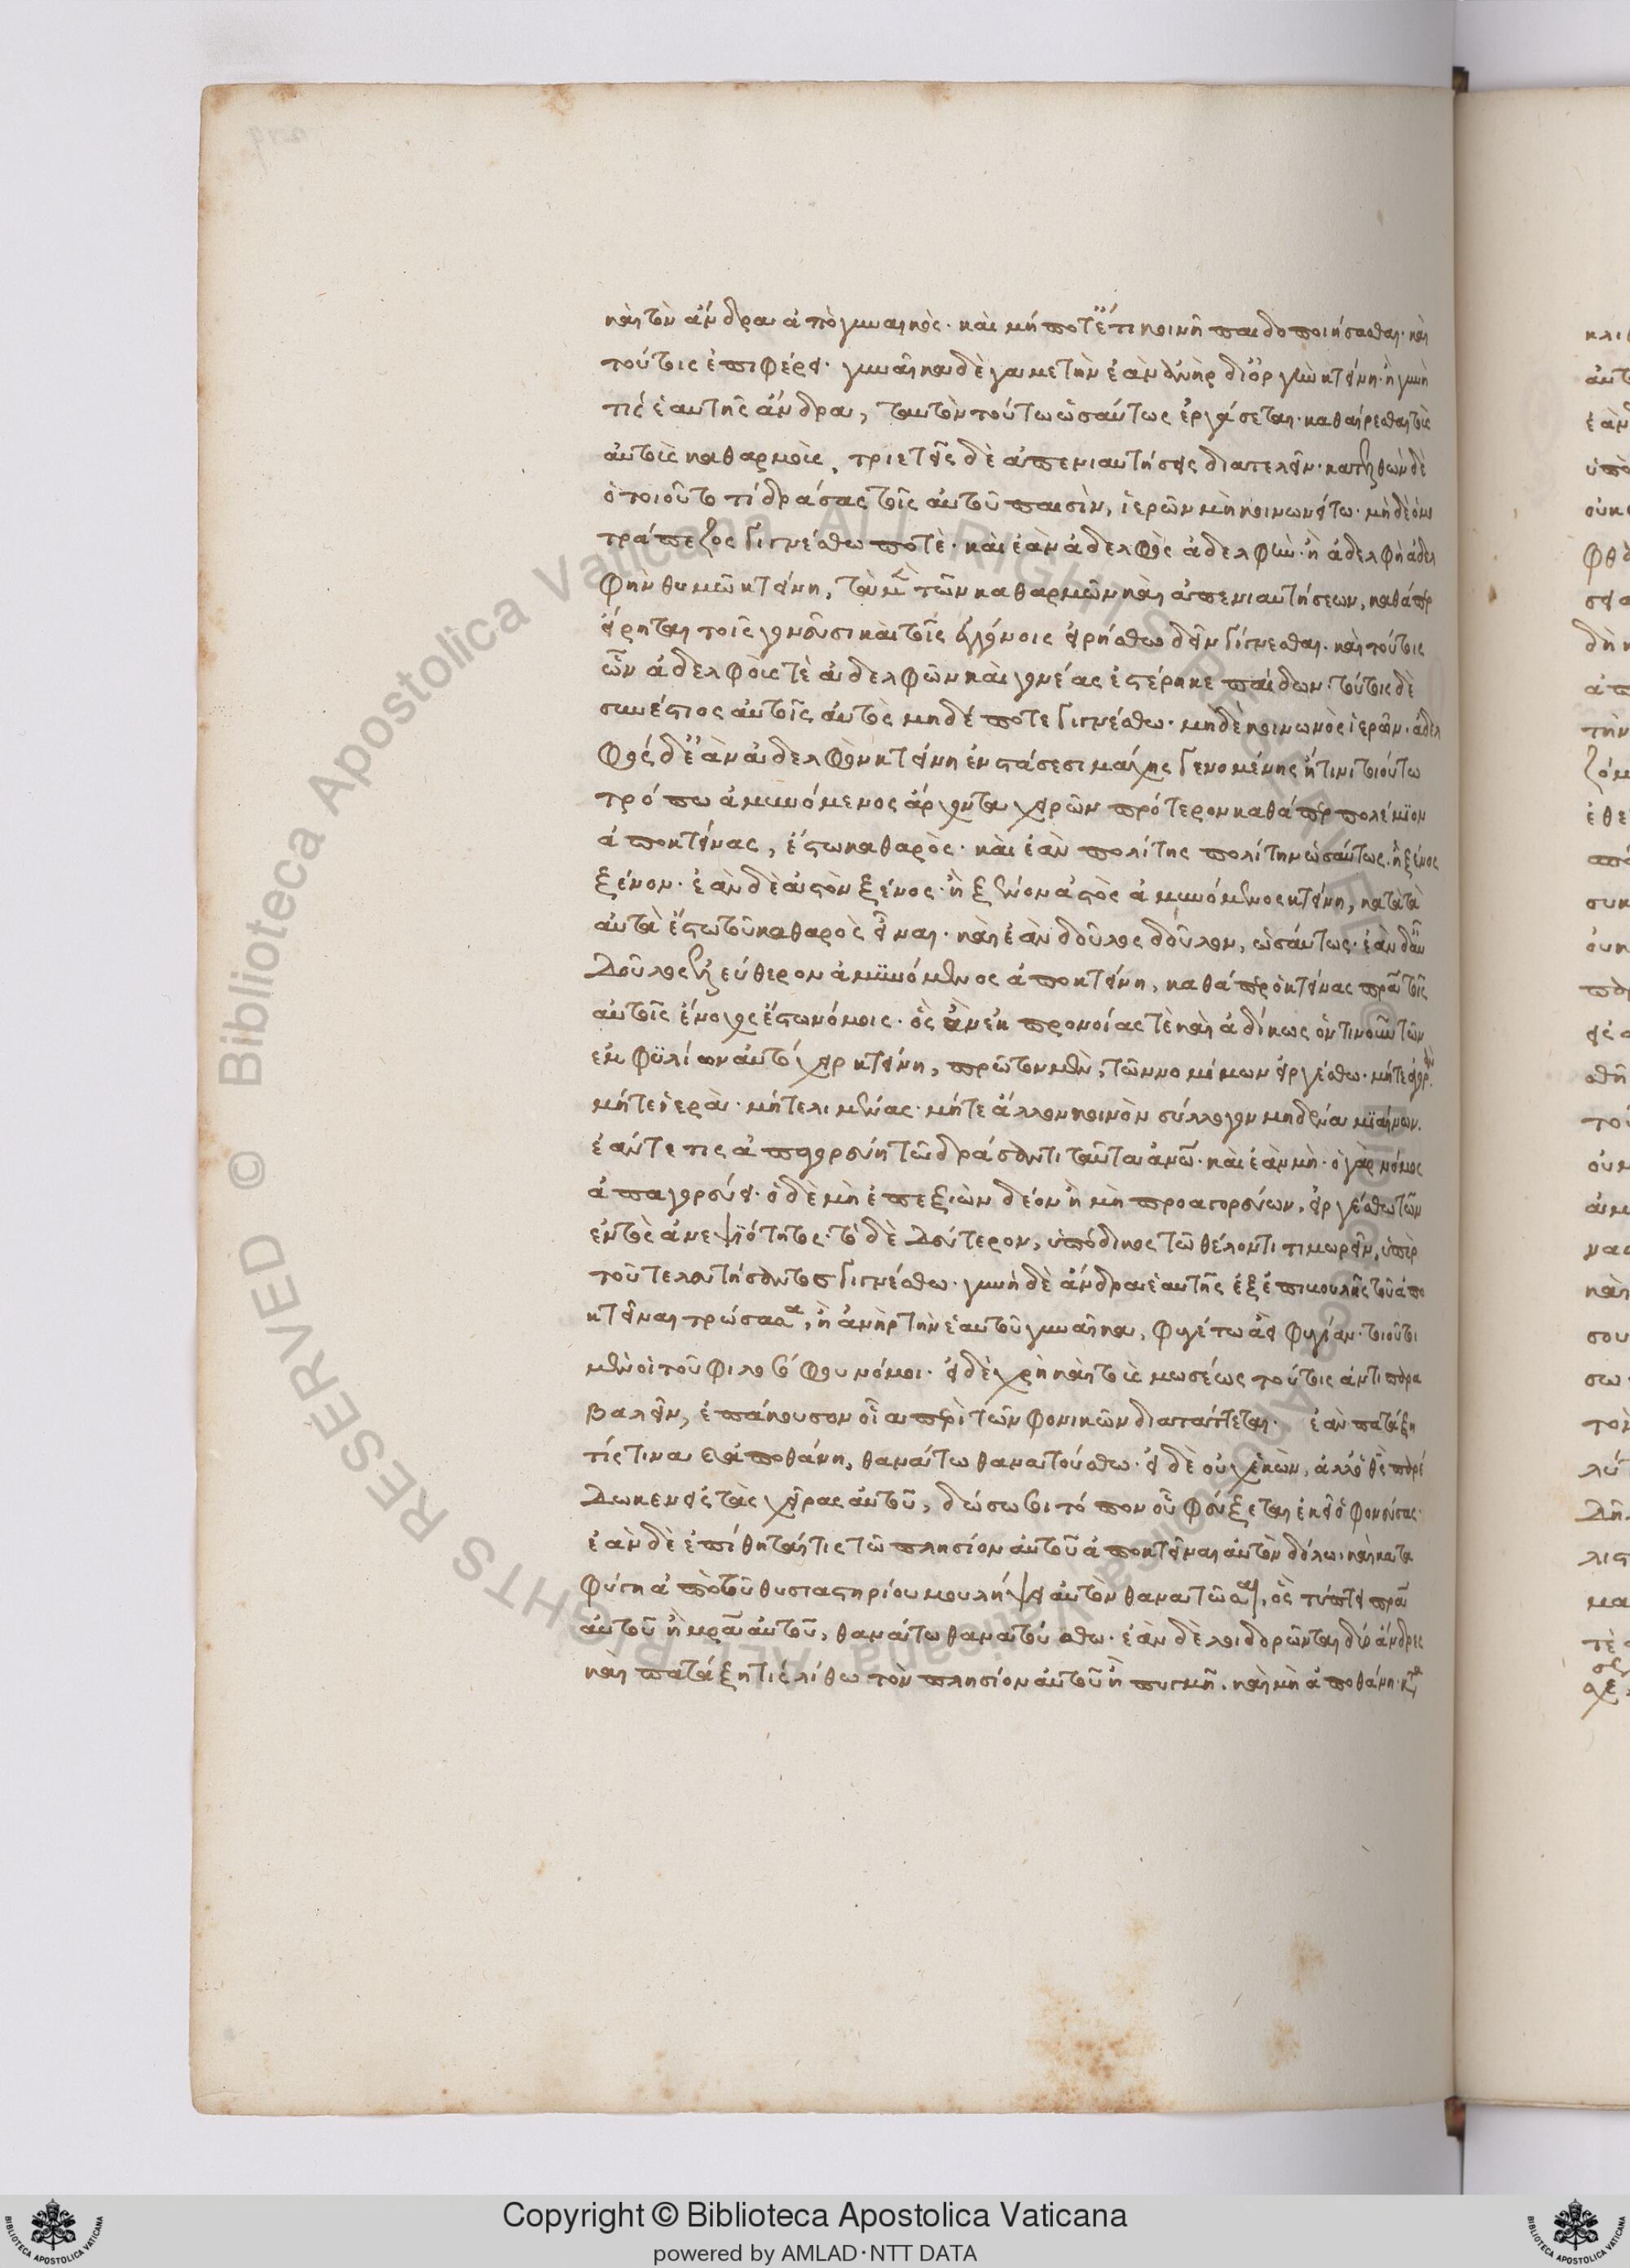 καὶ τὸν ἄνδρα ἀπὸ γυναικὸς· καὶ μή ποτ' ἔτι κοινῇ παιδοποιήσασθαι· καὶ
τούτοις ἐπιφέρει· γυναῖκα δὲ γαμετὴν ἐὰν ἀνὴρ δι' ὀργὴν κτείνῃ· ἢ γυνὴ
τὶς ἑαυτῆς ἄνδρα, ταυτὸν τοῦτο ὡσαύτως ἐργάσεται· καθαίρεσθαι τοὺς
αὐτοὺς καθαρμοὺς, τριετεῖς δὲ ἀπενιαυτήσεις διατελεῖν· κατελθὼν δὲ
ὁ τοιοῦτό τι δράσας τοῖς αὐτοῦ παισὶν, ἱερῶν μὴ κοινωνείτω· μηδὲ ὁμο
τράπεζος γιγνέσθω ποτὲ· καὶ ἐὰν ἀδελφὸς ἀδελφὸν· ἢ ἀδελφὴ ἀδελ
φὴν θυμῷ κτείνῃ, τὰ μὲν τῶν καθαρμῶν καὶ ἀπενιαυτήσεων, καθάπερ
εἴρηται τοῖς γονεῦσι καὶ τοῖς ἐκγόνοις εἰρήσθω δεῖν γίγνεσθαι· καὶ τούτοις
ὧν ἀδελφοὺς τὲ ἀδελφῶν καὶ γονέας ἐστέρηκε παίδων· τούτοις δὲ
συνέστιος αὐτοῖς αὐτὸς μηδέποτε γιγνέσθω· μηδὲ κοινωνὸς ἱερῶν· ἀδελ
φὸς δ' ἐὰν ἀδελφὸν κτείνῃ ἐν στάσεσι μάχης γενομένης ἤ τινι τοιούτῳ
τρόπῳ ἀμυνόμενος ἄρχοντα χειρῶν πρότερον καθάπερ πολέμιον
ἀποκτείνας, ἔστω καθαρὸς· καὶ ἐὰν πολίτης πολίτην ὡσαύτως· ἢ ξένος
ξένον· ἐὰν δὲ ἀστὸν ξένος· ἢ ξένον ἀστὸς ἀμυνόμενος κτείνῃ, κατὰ τὰ
αὐτὰ ἔστω τοῦ καθαρὸς εἶναι· καὶ ἐὰν δοῦλος δοῦλον, ὡσαύτως· ἐὰν δ' αὖ
δοῦλος ἐλεύθερον ἀμυνόμενος ἀποκτείνῃ, καθάπερ ὁ κτείνας πατέρα τοῖς
αὐτοῖς ἔνοχος ἔστω νόμοις· ὃς ἂν ἐκ προνοίας τὲ καὶ ἀδίκως ὁντινοῦν τῶν
ἐμφυλίων αὐτόχειρ κτείνῃ, πρῶτον μὲν, τῶν νομίμων εἰργέσθω· μήτε ἀγορὰν
μήτε ἱερὰ· μήτε λιμένας· μήτε ἄλλον κοινὸν σύλλογον μηδένα μιαίνων·
ἐάν τε τις ἀπαγορεύῃ τῷ δράσαντι ταῦτα ἀνθρώπων· καὶ ἐὰν μὴ· ὁ γὰρ νόμος
ἀπαγορεύει· ὁ δὲ μὴ ἐπεξιὼν δέον ἢ μὴ προαγορεύων, εἰργέσθω τῶν
ἐντὸς ἀνεψιότητος· τὸ δὲ δεύτερον, ὑπόδικος τῷ θέλοντι τιμωρεῖν, ὑπὲρ
τοῦ τελευτήσαντος γιγνέσθω· γυνὴ δὲ ἄνδρα ἑαυτῆς ἐξ ἐπιβουλῆς τοῦ ἀπο
κτεῖναι τρώσασα, ἢ ἀνὴρ τὴν ἑαυτοῦ γυναῖκα, φυγέτω ἀειφυγίαν· τοιοῦτοι
μὲν οἱ τοῦ φιλοσόφου νόμοι· εἰ δὲ χρὴ καὶ τοὺς μωσέως τούτοις ἀντιπαρα
βαλεῖν, ἐπάκουσον οἷα περὶ τῶν φονικῶν διατάττεται· ἐὰν πατάξῃ
τίς τινα καὶ ἀποθάνῃ, θανάτῳ θανατούσθω· εἰ δὲ οὐχ ἑκὼν, ἀλλ' ὁ θεὸς παρέ
δωκεν εἰς τὰς χεῖρας αὐτοῦ, δώσω σοι τόπον οὗ φεύξεται ἐκεῖ ὁ φονεύσας·
ἐὰν δὲ ἐπιθῆταί τις τῷ πλησίον αὐτοῦ ἀποκτεῖναι αὐτὸν δόλῳ· καὶ κατα
φύγῃ ἀπὸ τοῦ θυσιαστηρίου μου λήψει αὐτὸν θανατῶσαι, ὃς τύπτει πατέρα
αὐτοῦ ἢ μητέρα αὐτοῦ, θανάτῳ θανατούσθω· ἐὰν δὲ λοιδορῶνται δύο ἄνδρες
καὶ πατάξῃ τὶς λίθῳ τὸν πλησίον αὐτοῦ ἢ πυγμῇ. καὶ μὴ ἀποθάνῃ· κατα